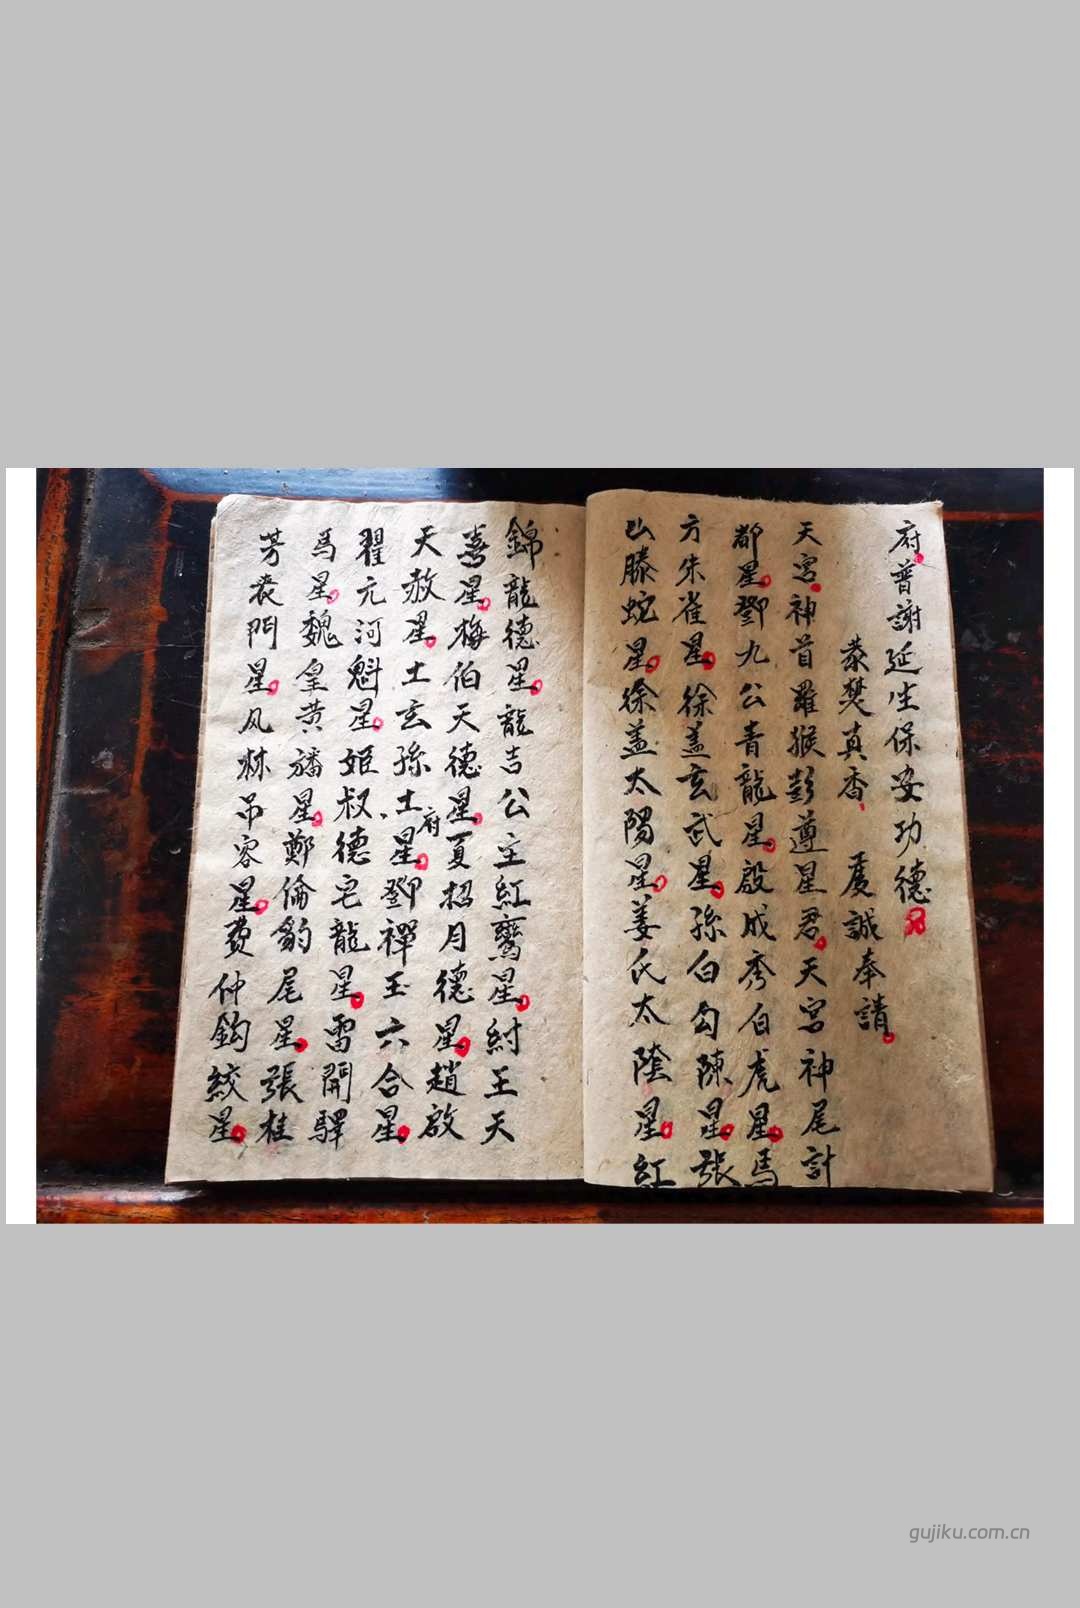 府普謝延生保安功德
恭焚真香 虔誠奉請
天宮神首羅猴彭遵星君天宮神尾計
都星鄧九公青龍星殷成秀白虎星馬
方朱雀星徐盖玄武星孫白勾陳星張
山滕蛇星徐盖太陽星姜氏太陰星紅
錦龍德星龍吉公主紅鸞星紂王天
喜星梅伯天德星夏招月德星趙啟
天赦星土玄孫土府星鄧禪玉六合星
瞿元河魁星姬叔德宅龍星雷開驛
馬星魏皇黄旛星鄭倫豹尾星張桂
芳丧門星风林吊容星費仲鈎絞星
gujiku.com.cn